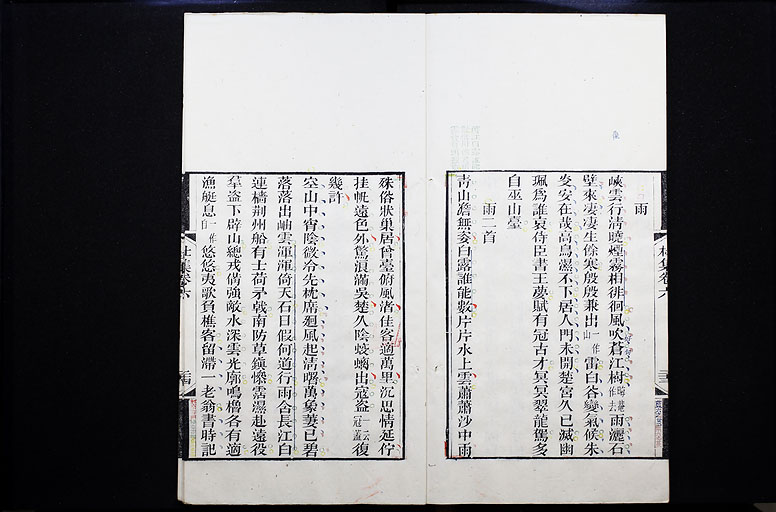 雨
峽雲行清曉煙霧相徘徊風吹蒼江樹作去雨灑石
壁來凄凄生餘寒殷殷兼出一作山雷白谷變氣候朱
炎安在哉高鳥濕不下居人門未開楚宮久已滅幽
珮爲誰哀侍臣書王夢賦有冠古才冥冥翠龍駕多
自巫山臺
雨二首
青山澹無姿白露誰能數片片水上雲蕭蕭沙中雨
殊俗狀巢居曾臺俯風渚佳客適萬里沉思情延佇
挂帆遠色外驚浪滿吳楚久陰蛟螭出寇盜一云冠蓋復
幾許
空山中宵陰微冷先枕席迴風起清曙萬象萋已碧
落落出岫雲渾渾倚天石日假何道行雨含長江白
連檣荆州船有士荷矛戟南防草鎭慘霑濕赴遠役
羣盜下辟山總戎備強敵水深雲光廓鳴櫓各有適
漁艇息一作悠悠夷歌負樵客留滯一老翁書時記
杜集卷六